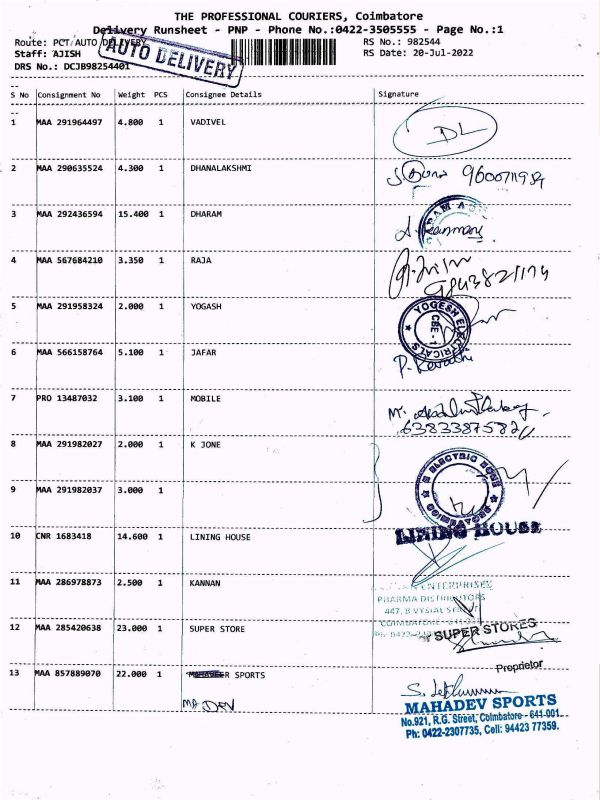 THE PROFESSIONAL COURIERS, Coimbatore
Delivery Runsheet - PNP - Phone No.:0422-3505555 - Page No.:1
Route: PCT AUTO DELIVERY RS No.: 982544
Staff: AJISH RS Date: 20-Jul-2022
DRS No.: DCJB98254401
AUTO DELIVERY
S No Consignment No Weight PCS Consignee Details Signature
1 MAA 291964497 4.800 1 VADIVEL DL
2 MAA 290635524 4.300 1 DHANALAKSHMI
3 MAA 292436594 15.400 1 DHARAM
4 MAA 567684210 3.350 1 RAJA
5 MAA 291958324 2.000 1 YOGASH YOGESH ELECTRICALS CBE - 1
6 MAA 566158764 5.100 1 JAFAR
7 PRO 13487032 3.100 1 MOBILE
8 MAA 291982027 2.000 1 K JONE
9 MAA 291982037 3.000 1
10 CNR 1683418 14.600 1 LINING HOUSE LINING HOUSE
11 MAA 286978873 2.500 1 KANNAN ENTERPRISES
PHARMA DISTRIBUTORS
12 MAA 285420638 23.000 1 SUPER STORE SUPER STORES
Proprietor
13 MAA 857889070 22.000 1 SPORTS
DEV
MAHADEV SPORTS
No.921, R.G. Street, Coimbatore - 641 001.
Ph: 0422-2307735, Cell: 94423 77359.